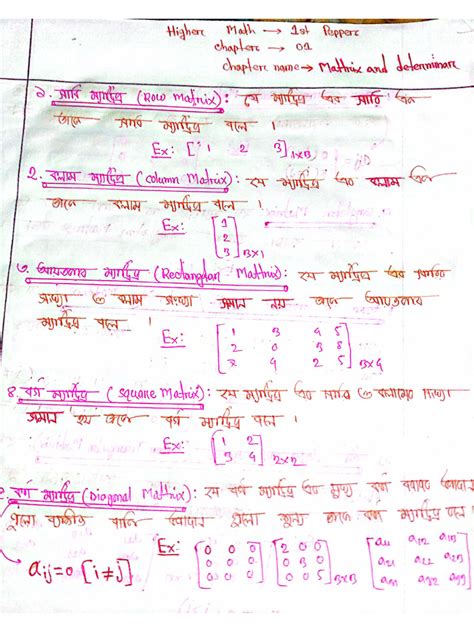 Higher Math → 1st Papperc
chapterc → 01
chapterc name → Mathrix and determinant
১. সারি ম্যাট্রিক্স (Row Matrix): যে ম্যাট্রিক্স এর সারি এক
তাকে সারি ম্যাট্রিক্স বলে ।
Ex: [1 2 3]1×3
2. কলাম ম্যাট্রিক্স (column Matrix): যে ম্যাট্রিক্স এর কলাম একটি
তাকে কলাম ম্যাট্রিক্স বলে ।
Ex: [1
2
3]3×1
৩. আয়তাকার ম্যাট্রিক্স (Rectangular Mathrix): যে ম্যাট্রিক্স এর সারির
সংখ্যা ও কলাম সংখ্যা সমান নয় তাকে আয়তাকার
ম্যাট্রিক্স বলে ।
Ex: [1 3 4 5
2 0 3 8
x 4 2 5]3×4
৪. বর্গ ম্যাট্রিক্স (square Matrix): যে ম্যাট্রিক্স এর সারি ও কলামের সংখ্যা
সমান হয় তাকে বর্গ ম্যাট্রিক্স বলে ।
Ex: [1 2
3 4]2×2
কর্ণ ম্যাট্রিক্স (Diagonal Mathrix): যে বর্গ ম্যাট্রিক্স এর মুখ্য কর্ণ বরাবর
গুলো ব্যতীত বাকি উপাদান গুলো শূন্য তাকে কর্ণ ম্যাট্রিক্স বলে ।
aij=0 [i≠j]
Ex: [0 0 0 [2 0 0 [a11 a12 a13
0 0 0 0 0 0 a21 a22
0 0 5] 0 0 5]3×3 a31 a32 a33]